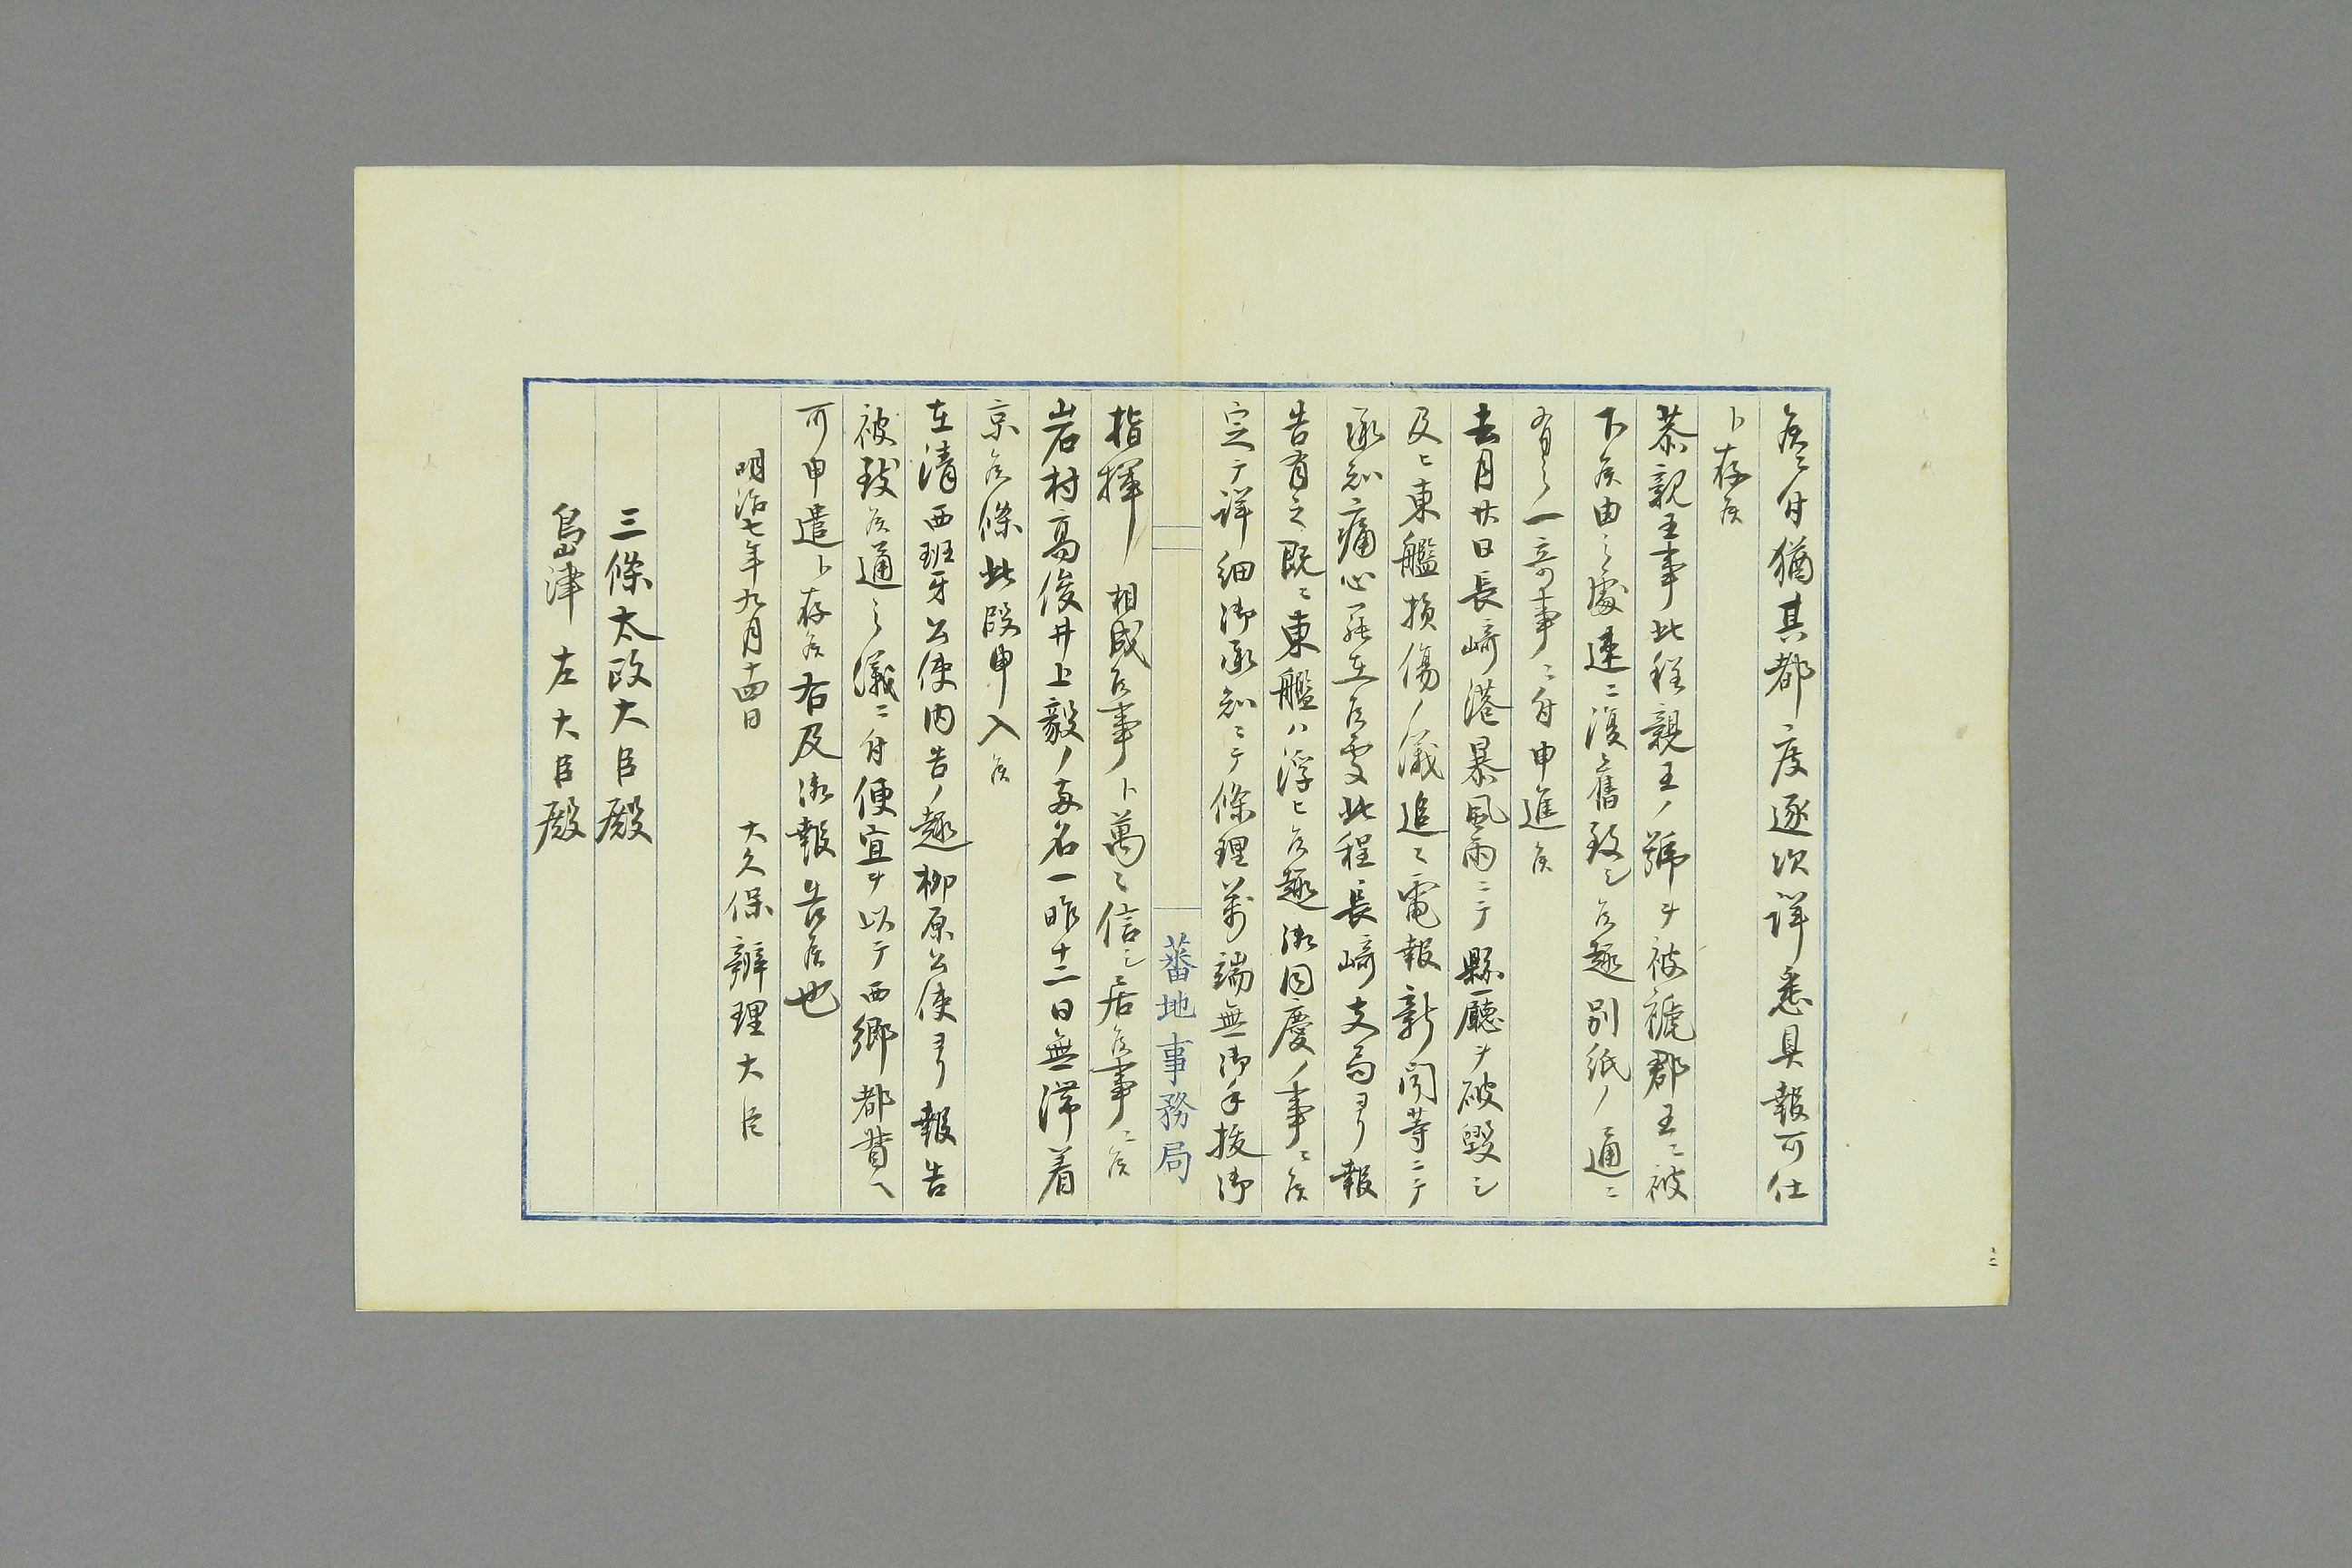 候ニ付猶其都度逐次詳悉具報可仕
ト存候
恭親王事此程親王ノ號ヲ被褫郡王ニ被
下候由之處速ニ復舊致シ候趣別紙ノ通ニ
有之一奇事ニ付申進候
去月廿日長崎港暴風雨ニテ縣廳ヲ破毀シ
及ヒ東艦損傷ノ儀追々電報新聞等ニテ
承知痛心罷在候處此程長崎支局ヨリ報
告有之既ニ東艦ハ浮ヒ候趣御同慶ノ事ニ候
定テ詳細御承知ニテ條理萬端無御手拔御
蕃地事務局
指揮相成候事ト萬々信シ居候事ニ候
岩村高俊井上毅ノ兩名一昨十二日無滞着
京候條此段申入候
在清西班牙公使内告ノ趣柳原公使ヨリ報告
被致候通之儀ニ付便宜ヲ以テ西郷都督ヘ
可申遣ト存候右及御報告候也
明治七年九月十四日 大久保辨理大臣
三條太政大臣殿
島津左大臣殿